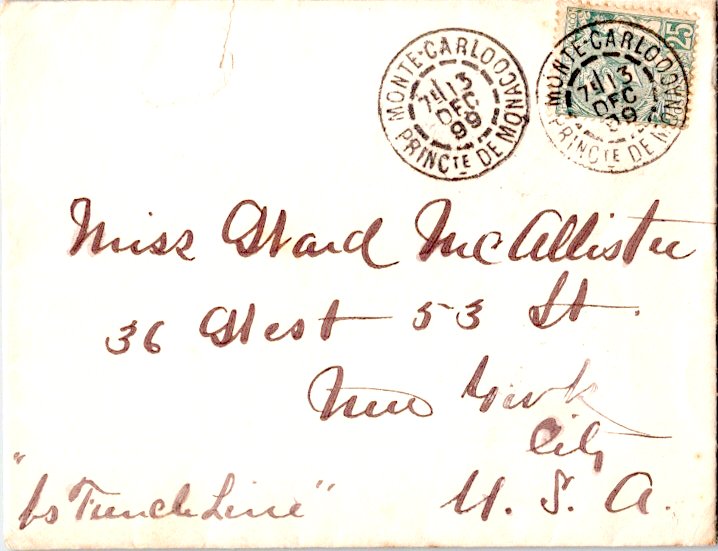 MONTE-CARLO
PRINCTE DE MONACO
7E/13
DEC
99
MONTE-CARLO
PRINCTE DE MONACO
7E/13
DEC
99
25
Miss Ward McAllister
36 West 53 St.
New York
City
U. S. A.
"French Line"